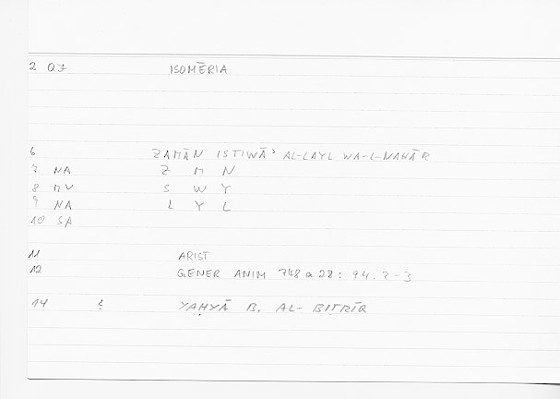 2 QJ ISOMĒRIA
6 ZAMĀN ISTIWĀʾ AL-LAYL WA-L-NAHĀR
7 NA Z M N
8 MV S W Y
9 NA L Y L
10 SA
11 ARIST
12 GENER ANIM 748 a 28: 94.2-3
14 YAḤYĀ B. AL-BIṬRĪQ